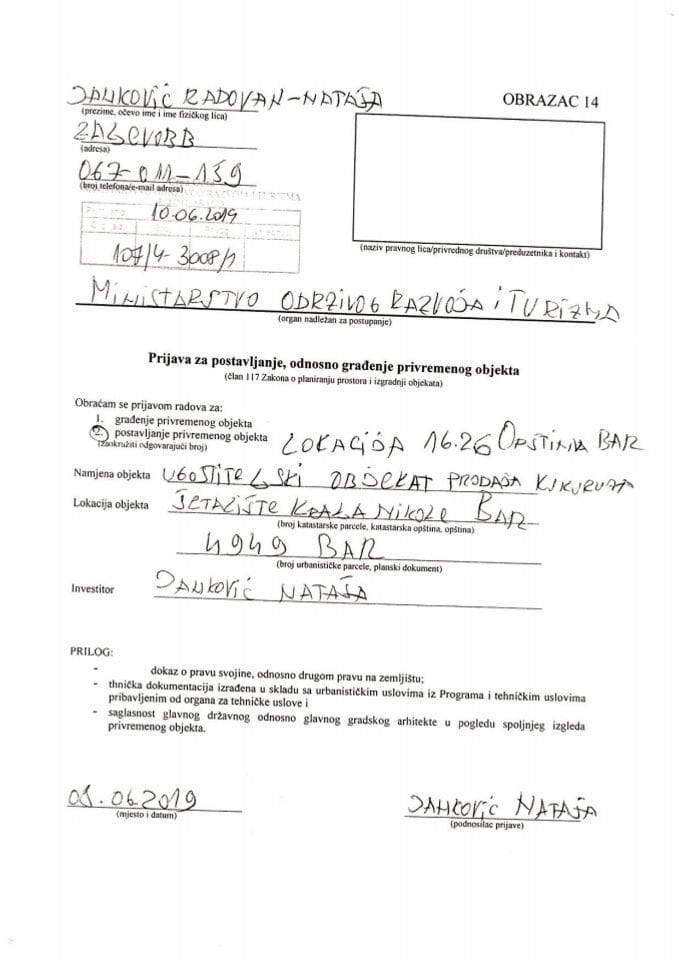 JANKOVIĆ RADOVAN-NATAŠA
OBRAZAC 14
(prezime, očevo ime i ime fizičkog lica)
(adresa)
067-011-139
(broj telefona/e-mail adresa)
10.06.2019
107/4-3008/1
(naziv pravnog lica/privrednog društva/preduzetnika i kontakt)
MINISTARSTVO ODRŽIVOG RAZVOJA I TURIZMA
(organ nadležan za postupanje)
Prijava za postavljanje, odnosno građenje privremenog objekta
(član 117 Zakona o planiranju prostora i izgradnji objekata)
Obraćam se prijavom radova za:
1. građenje privremenog objekta
2. postavljanje privremenog objekta
(zaokružiti odgovarajući broj)
LOKACIJA 16.26 OPŠTINA BAR
Namjena objekta UGOSTITELJSKI OBJEKAT PRODAJA KUKURUZA
Lokacija objekta ŠETALIŠTE KRALJA NIKOLE BAR
(broj katastarske parcele, katastarska opština, opština)
4949 BAR
(broj urbanističke parcele, planski dokument)
Investitor JANKOVIĆ NATAŠA
PRILOG:
- dokaz o pravu svojine, odnosno drugom pravu na zemljištu;
- thnička dokumentacija izrađena u skladu sa urbanističkim uslovima iz Programa i tehničkim uslovima
pribavljenim od organa za tehničke uslove i
- saglasnost glavnog državnog odnosno glavnog gradskog arhitekte u pogledu spoljnjeg izgleda
privremenog objekta.
.06.2019
(mjesto i datum)
JANKOVIĆ NATAŠA
(podnosilac prijave)